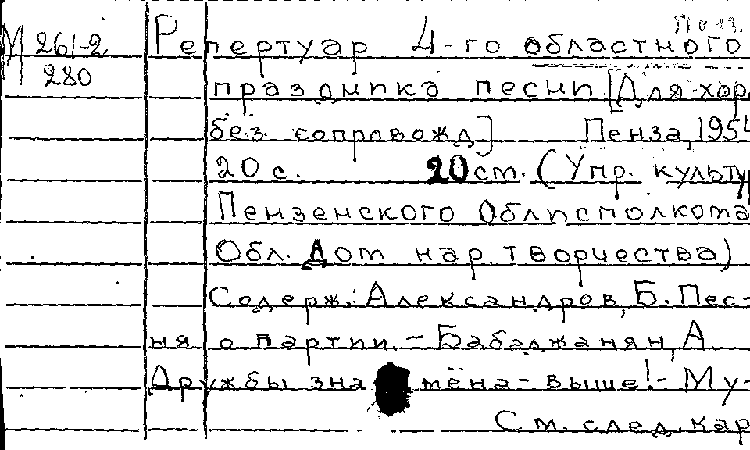 М 261-2
280
Репертуар 4-го областного
праздника песни [Для хор
без сопровожд] Пенза, 1954
20 с. 20 см. (Упр. культур
Пензенского Облисполкома
Обл. Дом нар. творчества)
Содерж.: Александров, Б. Пес-
ня о партии. – Бабаджанян, А.
Дружбы знамёна – выше! – Му-
См. след. кар